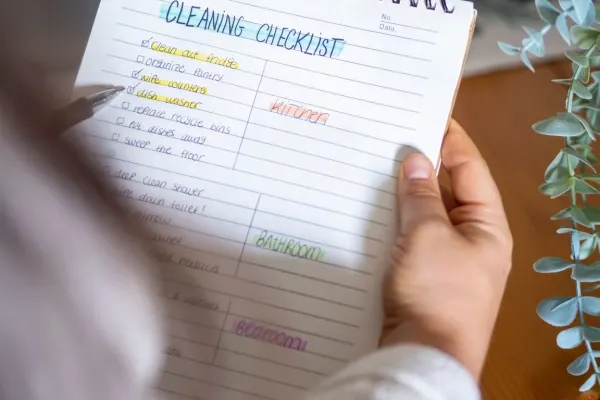 CLEANING CHECKLIST
No.
Date.
Clean out fridge
organize pantry
wipe counters
dish washer
replace recycle bins
put dishes away
sweep the floor
KITCHEN
deep clean shower
down toilet!
mirrors
BATHROOM
BEDROOM